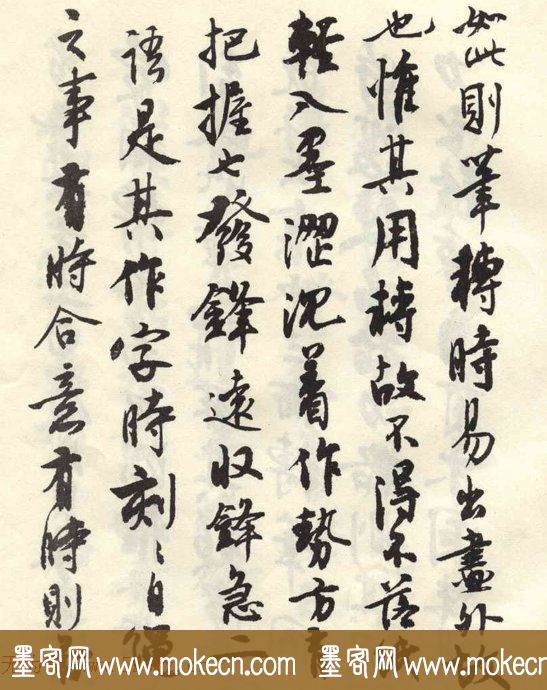 如此則筆轉時易出盡外故
也惟其用轉故不得不落
輕入墨澀沉着作勢方有
把握七發鋒遠收鋒急二
語是其作字時刻〻自運
之事有時合意有時則
墨客网 www.mokecn.com 墨客网 www.mokecn.com